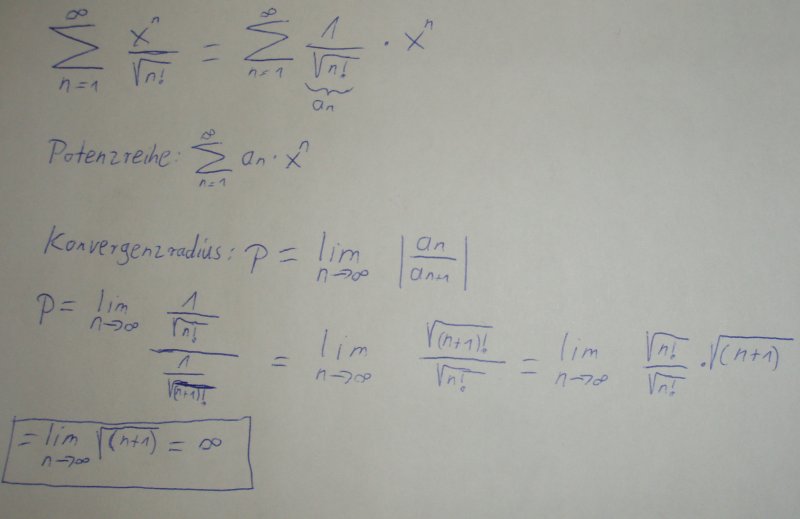 ∑_{n=1}^{∞} x^n / √n! = ∑_{n=1}^{∞} 1/√n! · x^n
a_n
Potenzreihe: ∑_{n=1}^{∞} a_n · x^n
Konvergenzradius: p = lim_{n→∞} |a_n / a_{n+1}|
p = lim_{n→∞} (1/√n!) / (1/√(n+1)!) = lim_{n→∞} √(n+1)! / √n! = lim_{n→∞} √n! / √n! · √(n+1)
= lim_{n→∞} √(n+1) = ∞